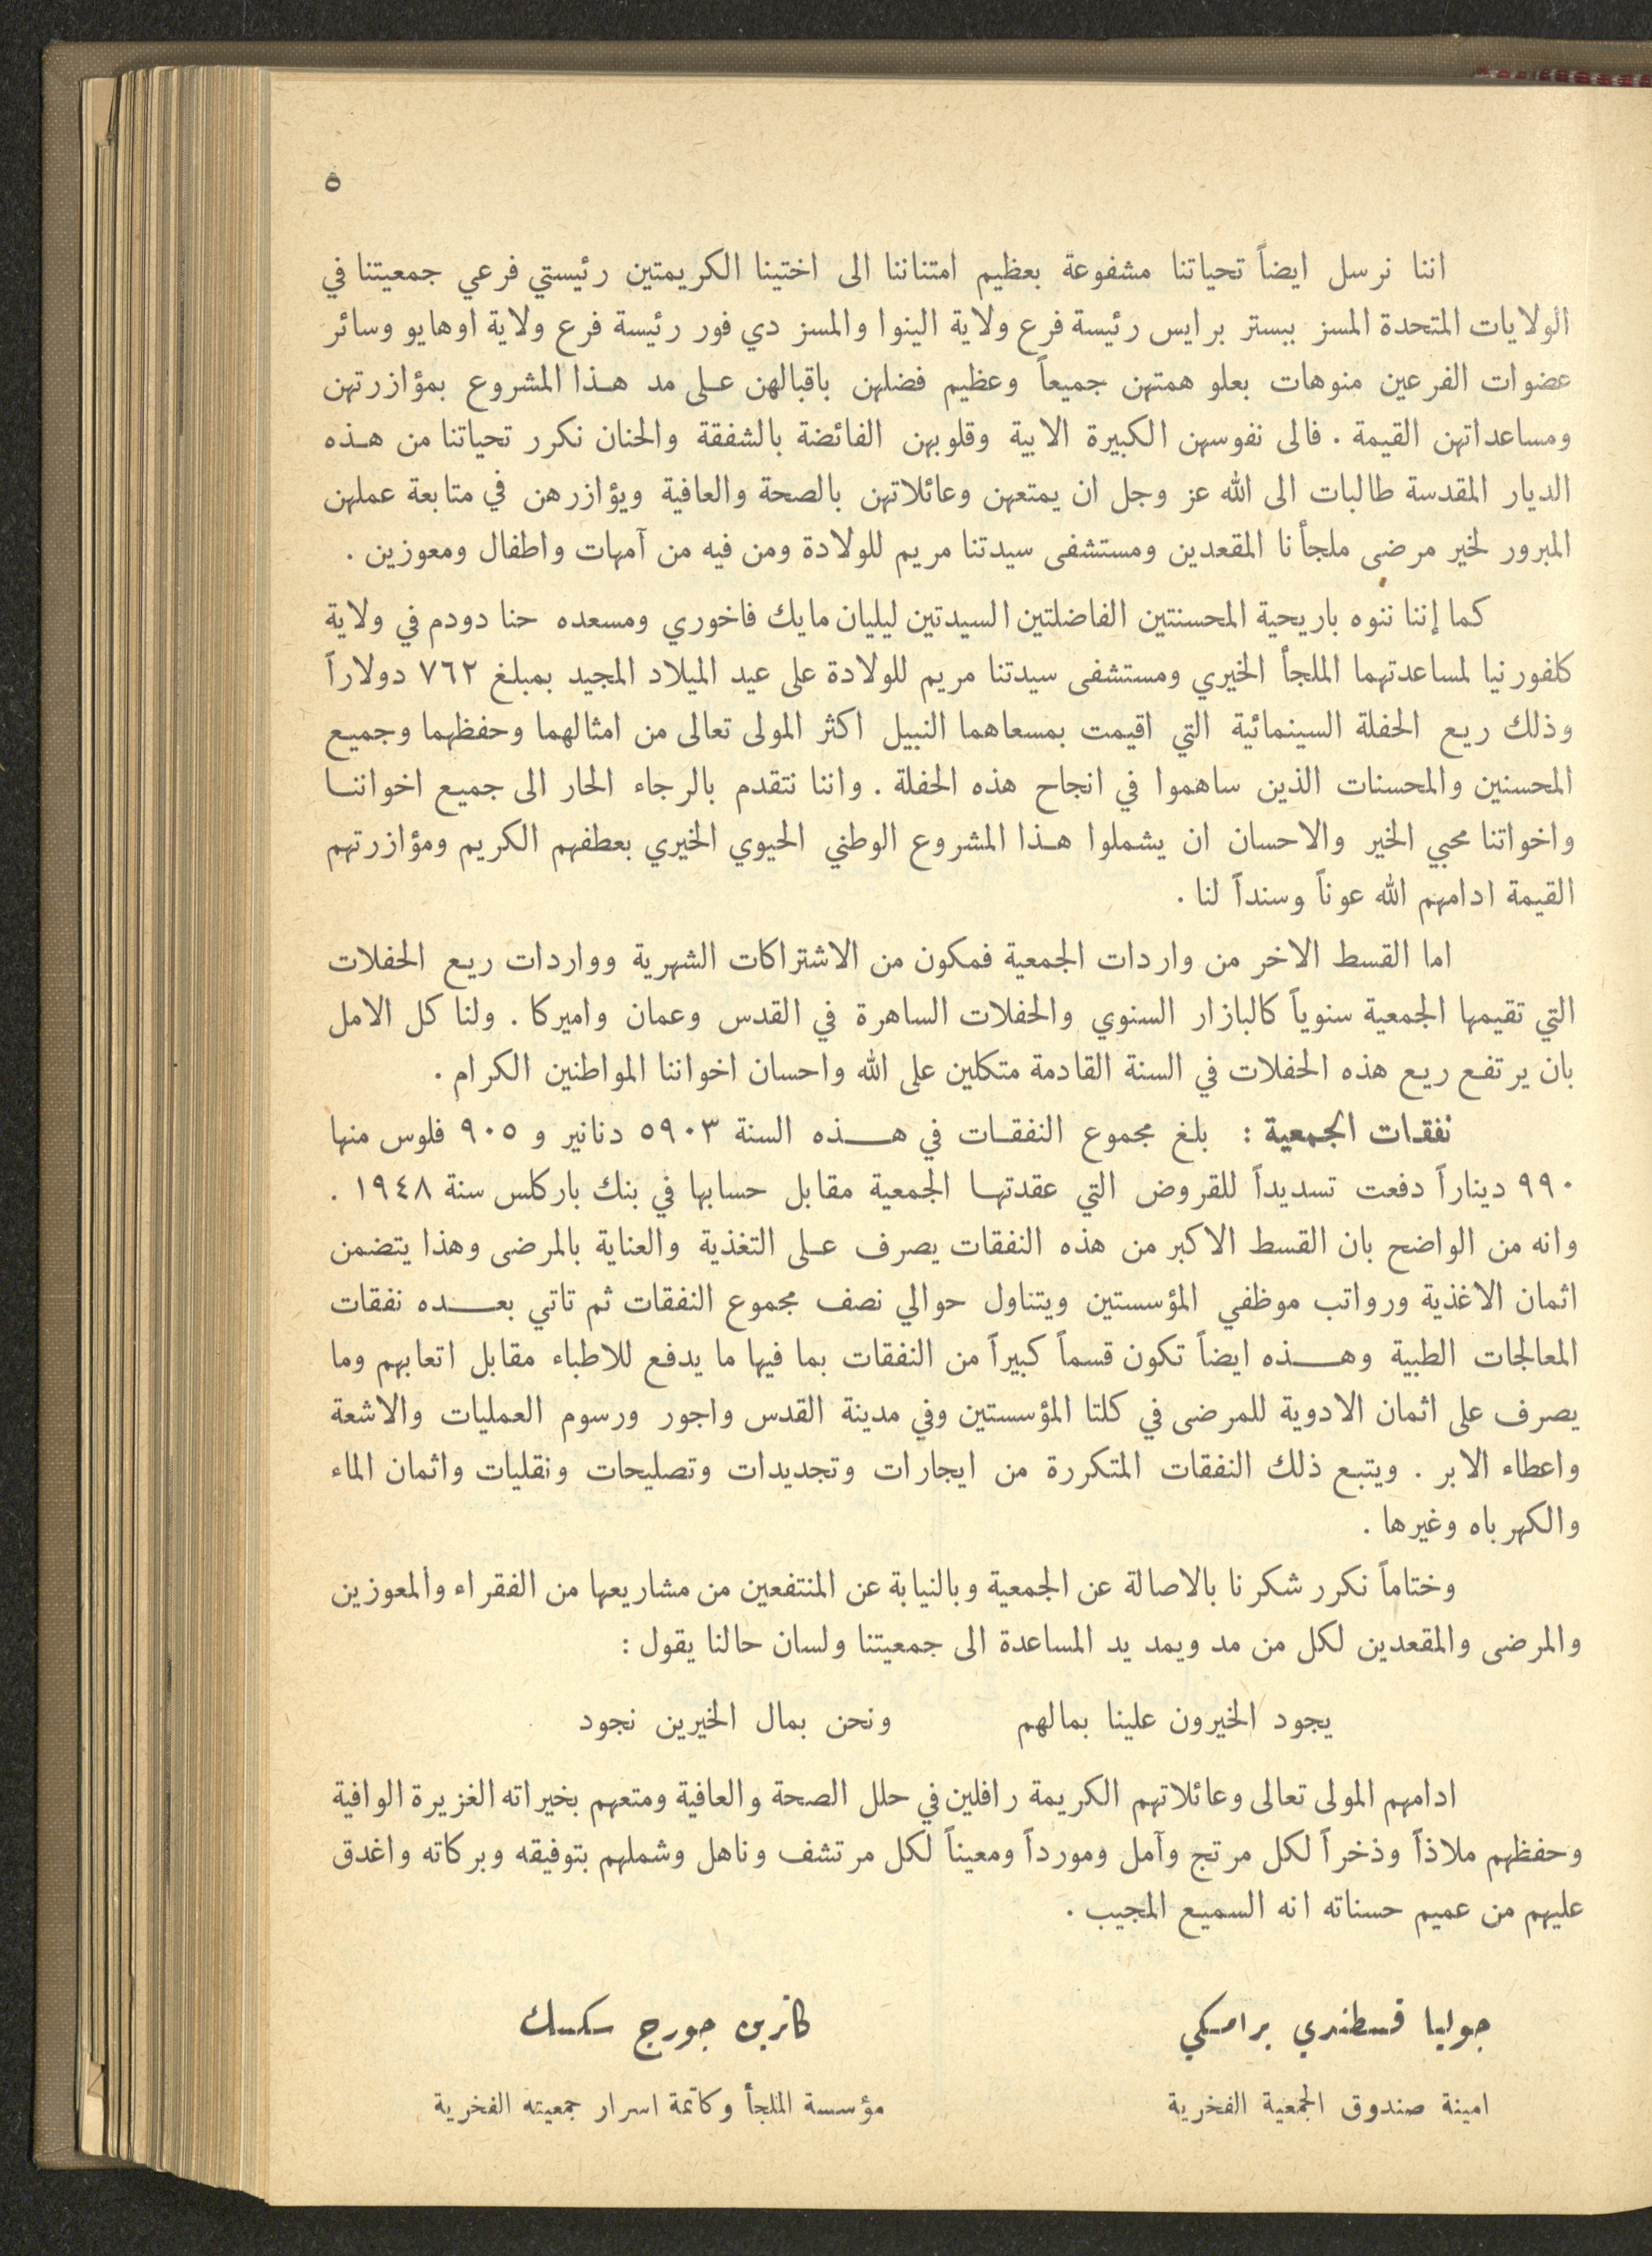 ٥
اننا نرسل ايضاً تحياتنا مشفوعة بعظيم امتناننا الى اختينا الكريمتين رئيستي فرعي جمعيتنا في
الولايات المتحدة المسز بيستر برايس رئيسة فرع ولاية الينوا والمسز دي فور رئيسة فرع ولاية اوهايو وسائر
عضوات الفرعين منوهات بعلو همتهن جميعاً وعظيم فضلهن باقبالهن على مد هذا المشروع بمؤازرتهن
ومساعداتهن القيمة . فالى نفوسهن الكبيرة الابية وقلوبهن الفائضة بالشفقة والحنان نكرر تحياتنا من هذه
الديار المقدسة طالبات الى الله عز وجل ان يمتعهن وعائلاتهن بالصحة والعافية ويؤازرهن في متابعة عملهن
المبرور لخير مرضى ملجأنا المقعدين ومستشفى سيدتنا مريم للولادة ومن فيه من آمهات واطفال ومعوزين .
كما إننا ننوه باريحية المحسنتين الفاضلتين السيدتين ليليان مايك فاخوري ومسعده حنا دودم في ولاية
كلفورنيا لمساعدتهما الملجأ الخيري ومستشفى سيدتنا مريم للولادة على عيد الميلاد المجيد بمبلغ ٧٦٢ دولاراً
وذلك ريع الحفلة السينمائية التي اقيمت بمسعاهما النبيل اكثر المولى تعالى من امثالهما وحفظهما وجميع
المحسنين والمحسنات الذين ساهموا في انجاح هذه الحفلة . واننا نتقدم بالرجاء الحار الى جميع اخواننا
واخواتنا محبي الخير والاحسان ان يشملوا هذا المشروع الوطني الحيوي الخيري بعطفهم الكريم ومؤازرتهم
القيمة ادامهم الله عوناً وسنداً لنا .
اما القسط الاخر من واردات الجمعية فمكون من الاشتراكات الشهرية وواردات ريع الحفلات
التي تقيمها الجمعية سنوياً كالبازار السنوي والحفلات الساهرة في القدس وعمان واميركا . ولنا كل الامل
بان يرتفع ريع هذه الحفلات في السنة القادمة متكلين على الله واحسان اخواننا المواطنين الكرام .
نفقات الجمعية : بلغ مجموع النفقات في هذه السنة ٥٩٠٣ دنانير و ٩٠٥ فلوس منها
٩٩٠ ديناراً دفعت تسديداً للقروض التي عقدتها الجمعية مقابل حسابها في بنك باركلس سنة ١٩٤٨ .
وانه من الواضح بان القسط الاكبر من هذه النفقات يصرف على التغذية والعناية بالمرضى وهذا يتضمن
اثمان الاغذية ورواتب موظفي المؤسستين ويتناول حوالي نصف مجموع النفقات ثم تاتي بعده نفقات
المعالجات الطبية وهذه ايضاً تكون قسماً كبيراً من النفقات بما فيها ما يدفع للاطباء مقابل اتعابهم وما
يصرف على اثمان الادوية للمرضى في كلتا المؤسستين وفي مدينة القدس واجور ورسوم العمليات والاشعة
واعطاء الابر . ويتبع ذلك النفقات المتكررة من ايجارات وتجديدات وتصليحات ونقليات واثمان الماء
والكهرباه وغيرها .
وختاماً نكرر شكرنا بالاصالة عن الجمعية وبالنيابة عن المنتفعين من مشاريعها من الفقراء والمعوزين
والمرضى والمقعدين لكل من مد ويمد يد المساعدة الى جمعيتنا ولسان حالنا يقول :
يجود الخيرون علينا بمالهم ونحن بمال الخيرين نجود
ادامهم المولى تعالى وعائلاتهم الكريمة رافلين في حلل الصحة والعافية ومتعهم بخيراته الغزيرة الوافية
وحفظهم ملاذاً وذخراً لكل مرتج وآمل ومورداً ومعيناً لكل مرتشف وناهل وشملهم بتوفيقه وبركاته واغدق
عليهم من عميم حسناته انه السميع المجيب .
جوليا قسطندي برامكي كاترين جورج سكسك
امينة صندوق الجمعية الفخرية مؤسسة الملجأ وكاتمة اسرار جمعيته الفخرية